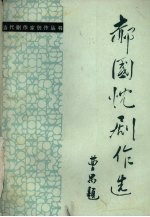 当代剧作家创作丛书
郝國忱劇作选
曹禺题